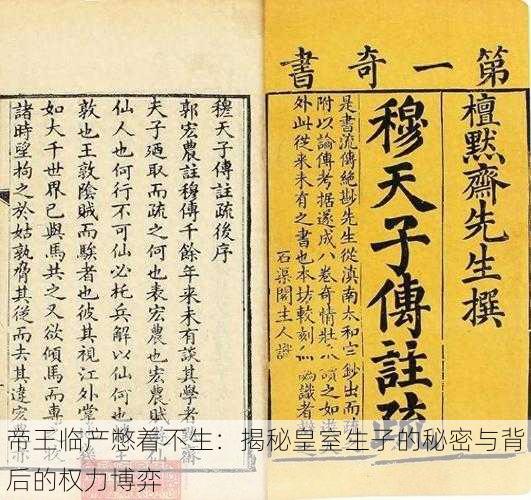 第一奇書
檀默齋先生撰
穆天子傳註疏
是書流傳絶尠先生從滇南太和宫鈔出而疏
附以論傳考据遂成八卷奇情壯
外此従来未有之書也本坊較刻
識者
石渠閣主人識
穆天子傳註疏後序
郭宏農註穆傳千餘年来未有談其學者
夫子廼取而疏之何也表宏農也宏農
仙人也何行不可仙必托兵解以仙何也
敦也王敦陰賊而駭者也彼其視江外掌
如大千世界已與馬共之又欲傾馬而專
諸時望拘之於姑孰脅其從而去其違宏農
帝王临产憋着不生：揭秘皇室生子的秘密与背
后的权力博弈